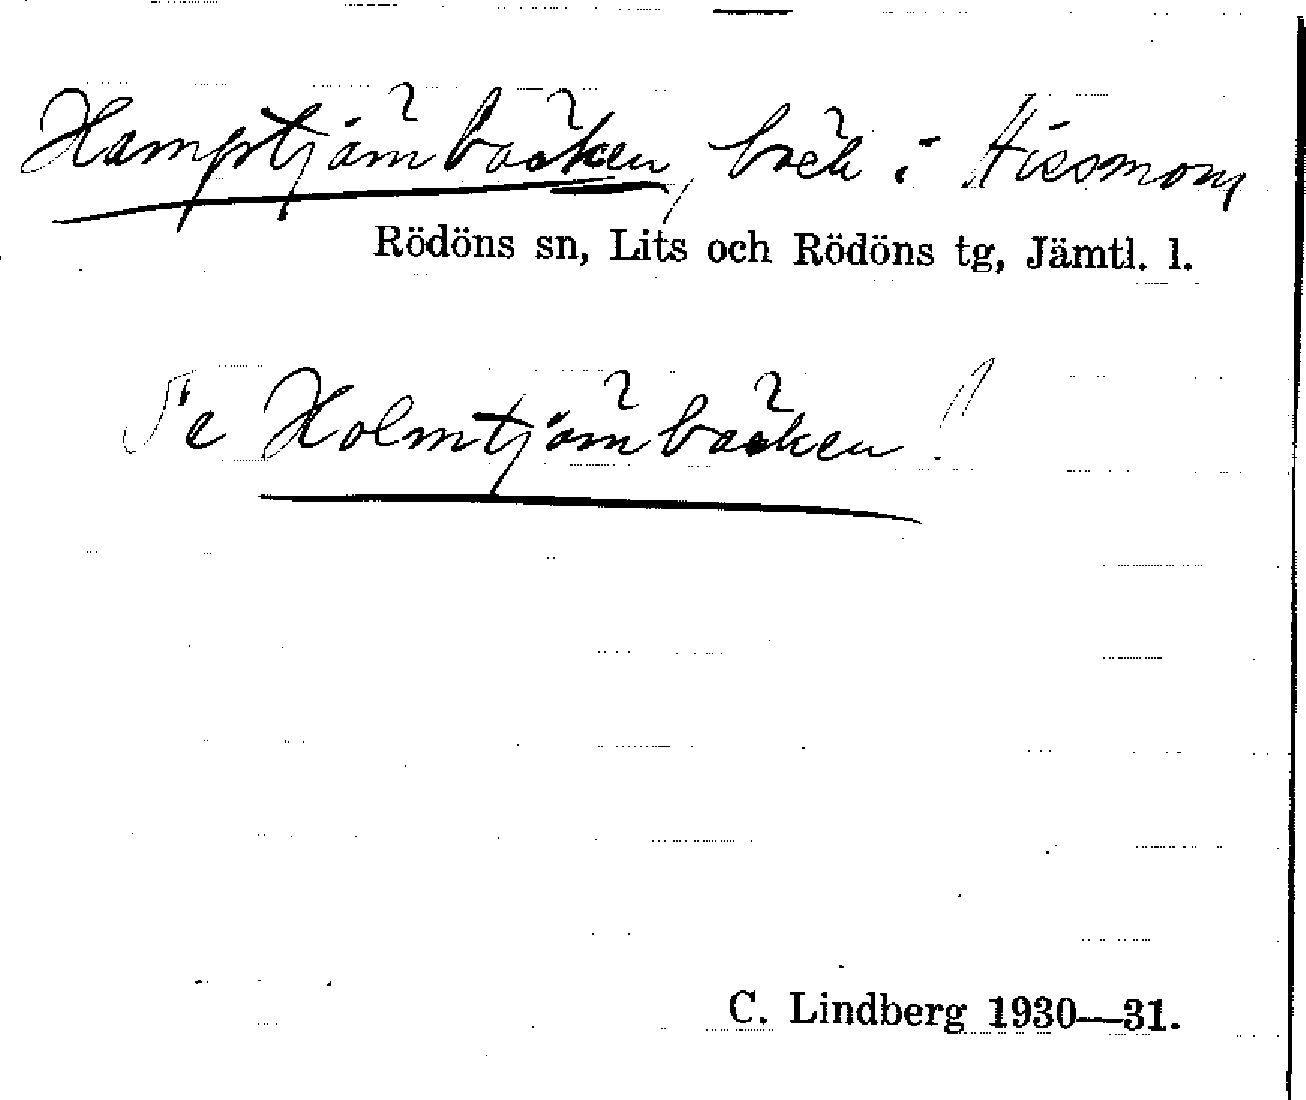 Hamptjärnbäcken, bäck i Hissmon,
Rödöns sn, Lits och Rödöns tg, Jämtl. l.
Se Holmtjärnbäcken!
C. Lindberg 1930—31.